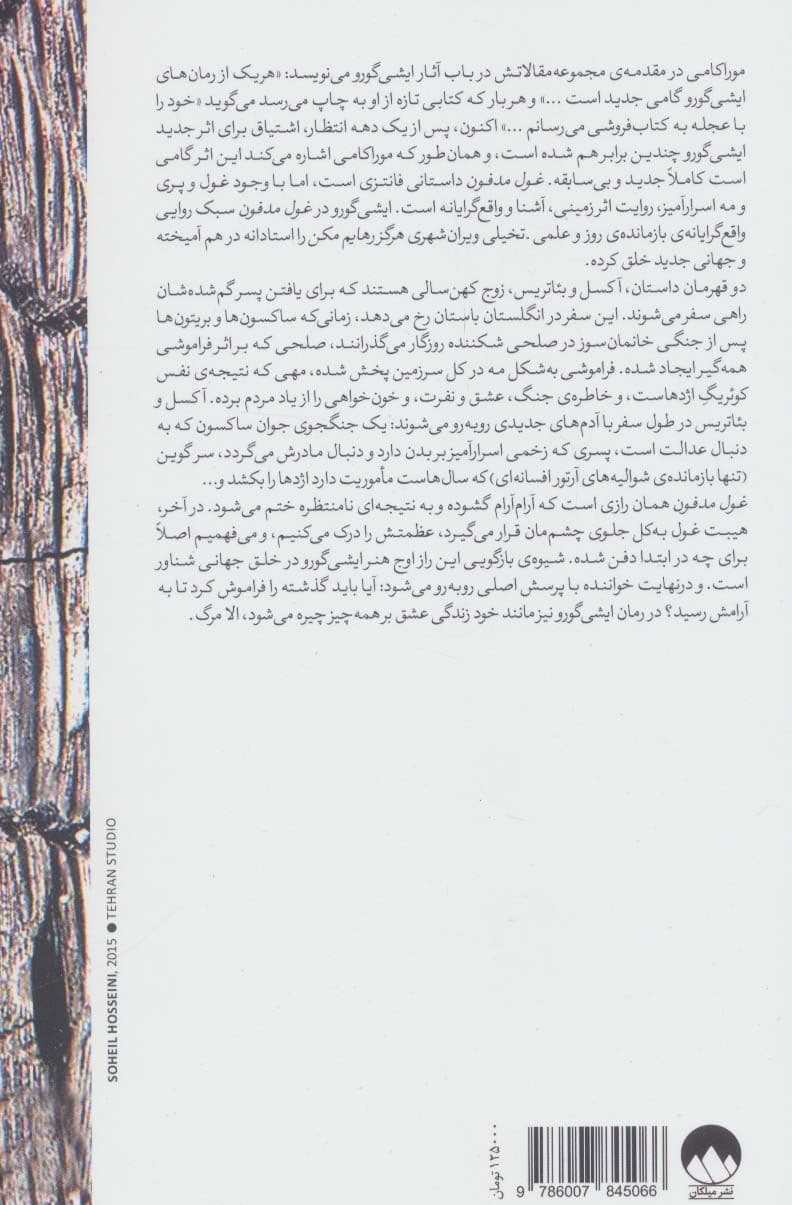 موراکامی در مقدمه‌ی مجموعه‌مقالاتش در باب آثار ایشی‌گورو می‌نویسد: «هر یک از رمان‌های
ایشی‌گورو گامی جدید است ...» و هر بار که کتابی تازه از او به چاپ می‌رسد می‌گوید «خود را
با عجله به کتاب‌فروشی می‌رسانم ...» اکنون، پس از یک دهه انتظار، اشتیاق برای اثر جدید
ایشی‌گورو چندین برابر هم شده است، و همان‌طور که موراکامی اشاره می‌کند این اثر گامی
است کاملاً جدید و بی‌سابقه. غول مدفون داستانی فانتزی است، اما با وجود غول و پری
و مه اسرارآمیز، روایت اثر زمینی، آشنا و واقع‌گرایانه است. ایشی‌گورو در غول مدفون سبک روایی
واقع‌گرایانه‌ی بازمانده‌ی روز و علمی ـ تخیلی ویران‌شهری هرگز رهایم مکن را استادانه در هم آمیخته
و جهانی جدید خلق کرده.
دو قهرمان داستان، آکسل و بئاتریس، زوج کهن‌سالی هستند که برای یافتن پسر گم‌شده‌شان
راهی سفر می‌شوند. این سفر در انگلستان باستان رخ می‌دهد، زمانی‌که ساکسون‌ها و بریتون‌ها
پس از جنگی خانمان‌سوز در صلحی شکننده روزگار می‌گذرانند، صلحی که بر اثر فراموشی
همه‌گیر ایجاد شده. فراموشی به‌شکل مه در کل سرزمین پخش شده، مهی که نتیجه‌ی نفس
کوئریگِ اژدهاست، و خاطره‌ی جنگ، عشق و نفرت، و خون‌خواهی را از یاد مردم برده. آکسل و
بئاتریس در طول سفر با آدم‌های جدیدی روبه‌رو می‌شوند: یک جنگجوی جوان ساکسون که به
دنبال عدالت است، پسری که زخمی اسرارآمیز بر بدن دارد و دنبال مادرش می‌گردد، سر گوین
(تنها بازمانده‌ی شوالیه‌های آرتور افسانه‌ای) که سال‌هاست مأموریت دارد اژدها را بکشد و...
غول مدفون همان رازی است که آرام‌آرام گشوده و به نتیجه‌ای نامنتظره ختم می‌شود. در آخر،
هیبت غول به‌کل جلوی چشم‌مان قرار می‌گیرد، عظمتش را درک می‌کنیم، و می‌فهمیم اصلاً
برای چه در ابتدا دفن شده. شیوه‌ی بازگویی این راز اوج هنر ایشی‌گورو در خلق جهانی شناور
است. و درنهایت خواننده با پرسش اصلی روبه‌رو می‌شود: آیا باید گذشته را فراموش کرد تا به
آرامش رسید؟ در رمان ایشی‌گورو نیز مانند خود زندگی عشق بر همه چیز چیره می‌شود، الا مرگ.
SOHEIL HOSSEINI, 2015 ● TEHRAN STUDIO
۱۲۵۰۰۰ تومان
9 786007 845066
نشر میلکان